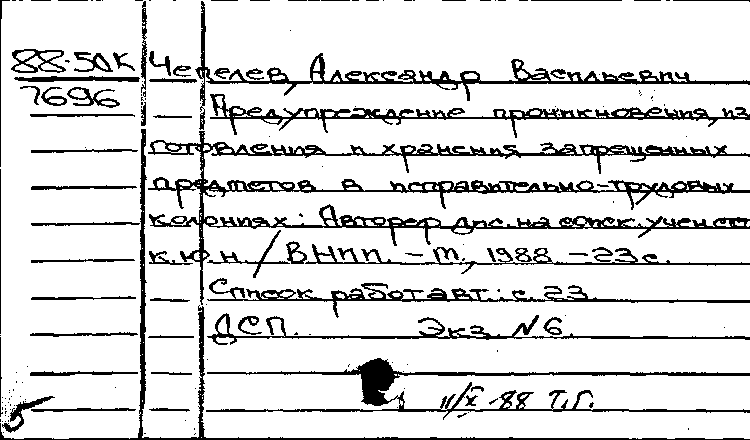 88-50К
7696
Чепелев, Александр Васильевич
Предупреждение проникновения, из
готовления и хранения запрещенных
предметов в исправительно-трудовых
колониях: Автореф. дис. на соиск. учен. ст.
к.ю.н. / ВНИИ. - М., 1988. - 23 с.
Список работ авт.: с. 23.
ДСП. Экз. №6.
11/X-88 Т.Г.
5